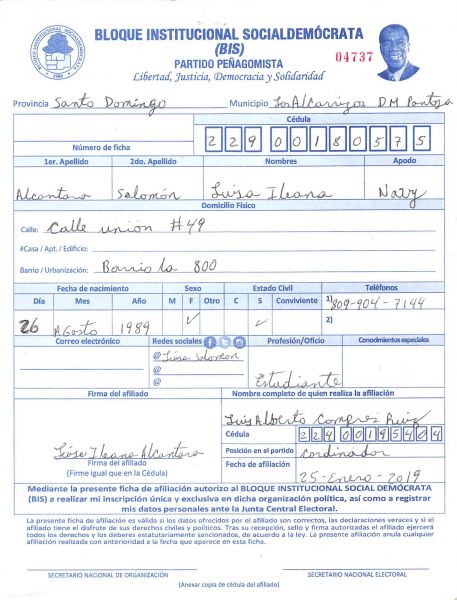 BLOQUE INSTITUCIONAL SOCIALDEMÓCRATA
(BIS)
PARTIDO PEÑAGOMISTA
Libertad, Justicia, Democracia y Solidaridad
04737
Provincia Santo Domingo Municipio Los Alcarrizos D M Pantoja
Cédula
Número de ficha 22900180575
1er. Apellido 2do. Apellido Nombres Apodo
Alcantara Salomón Luisa Ileana Navy
Domicilio Físico
Calle: Calle unión #49
#Casa / Apt. / Edificio:
Barrio / Urbanización: Barrio La 800
Fecha de nacimiento Sexo Estado Civil Teléfonos
Día Mes Año M F Otro C S Conviviente 1) 809-904-7144
26 Agosto 1989 ✓ ✓ 2)
Correo electrónico Redes sociales Profesión/Oficio Conocimientos especiales
@ Salomon
@
@ Estudiante
Firma del afiliado Nombre completo de quien realiza la afiliación
Luis Alberto Compres Ruiz
Cédula 22400195404
Ileana Alcantara Posición en el partido Cordinador
Firma del afiliado
(Firme igual que en la Cédula) Fecha de afiliación 25-Enero-2019
Mediante la presente ficha de afiliación autorizo al BLOQUE INSTITUCIONAL SOCIAL DEMÓCRATA
(BIS) a realizar mi inscripción única y exclusiva en dicha organización política, así como a registrar
mis datos personales ante la Junta Central Electoral.
La presente ficha de afiliación es válida si los datos ofrecidos por el afiliado son correctos, las declaraciones veraces y si el
afiliado tiene el disfrute de sus derechos civiles y políticos. Tras su recepción, sello y firma autorizada el afiliado ejercerá
todos los derechos y los deberes estatutariamente sancionados, de acuerdo a la ley. La presente afiliación anula cualquier
afiliación realizada con anterioridad a la fecha que aparece en esta ficha.
SECRETARIO NACIONAL DE ORGANIZACIÓN SECRETARIO NACIONAL ELECTORAL
(Anexar copia de cédula del afiliado)